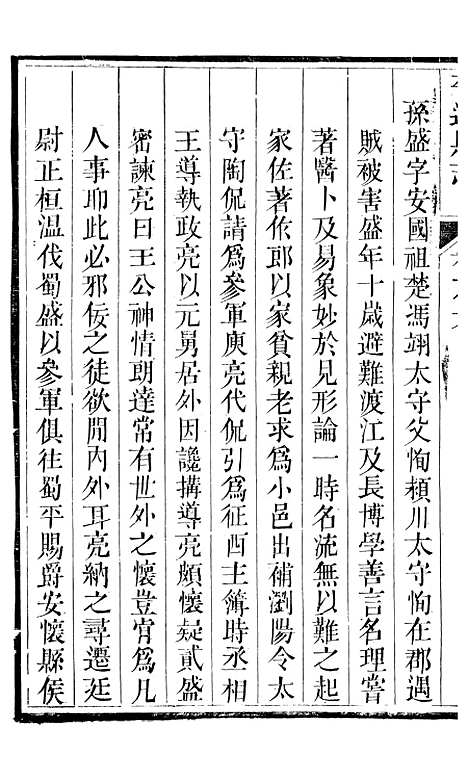 孫盛字安國祖楚馮翊太守父恂潁川太守恂在郡遇
賊被害盛年十歲避難渡江及長博學善言名理嘗
著醫卜及易象妙於見形論一時名流無以難之起
家佐著作郎以家貧親老求爲小邑出補瀏陽令太
守陶侃請爲參軍庾亮代侃引爲征西主簿時丞相
王導執政亮以元舅居外因讒搆導亮頗懷疑貳盛
密諫亮曰王公神情朗達常有世外之懷豈肯爲凡
人事耶此必邪佞之徒欲閒內外耳亮納之尋遷廷
尉正桓溫伐蜀盛以參軍俱往蜀平賜爵安懷縣侯